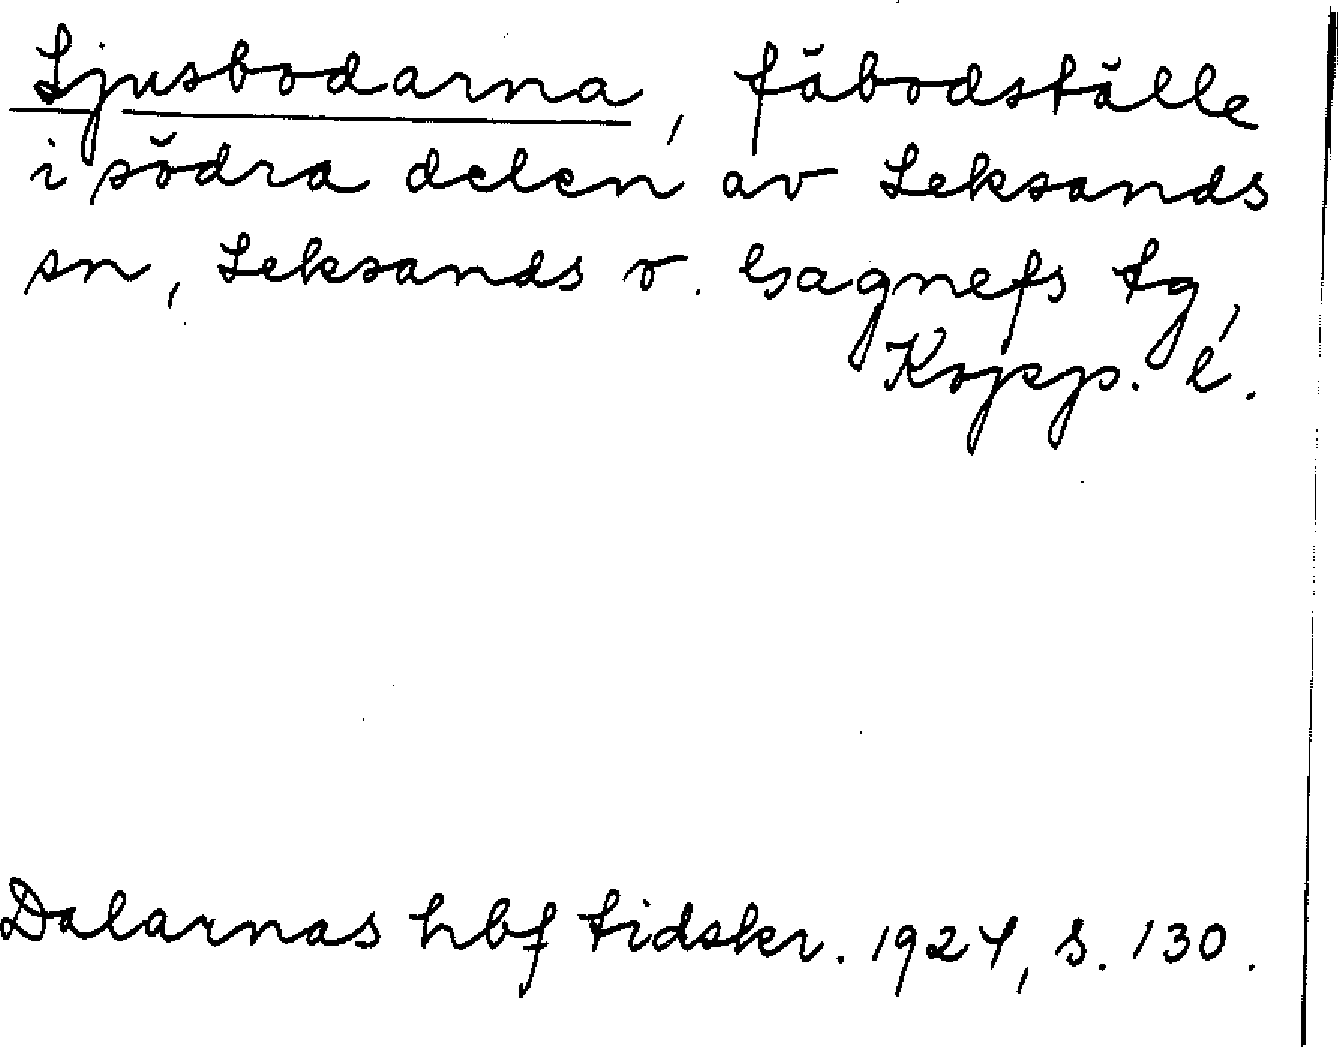 Ljusbodarna, fäbodställe
i södra delen av Leksands
sn, Leksands o. Gagnefs tg,
Kopp. l.
Dalarnas hbf tidskr. 1924, s. 130.